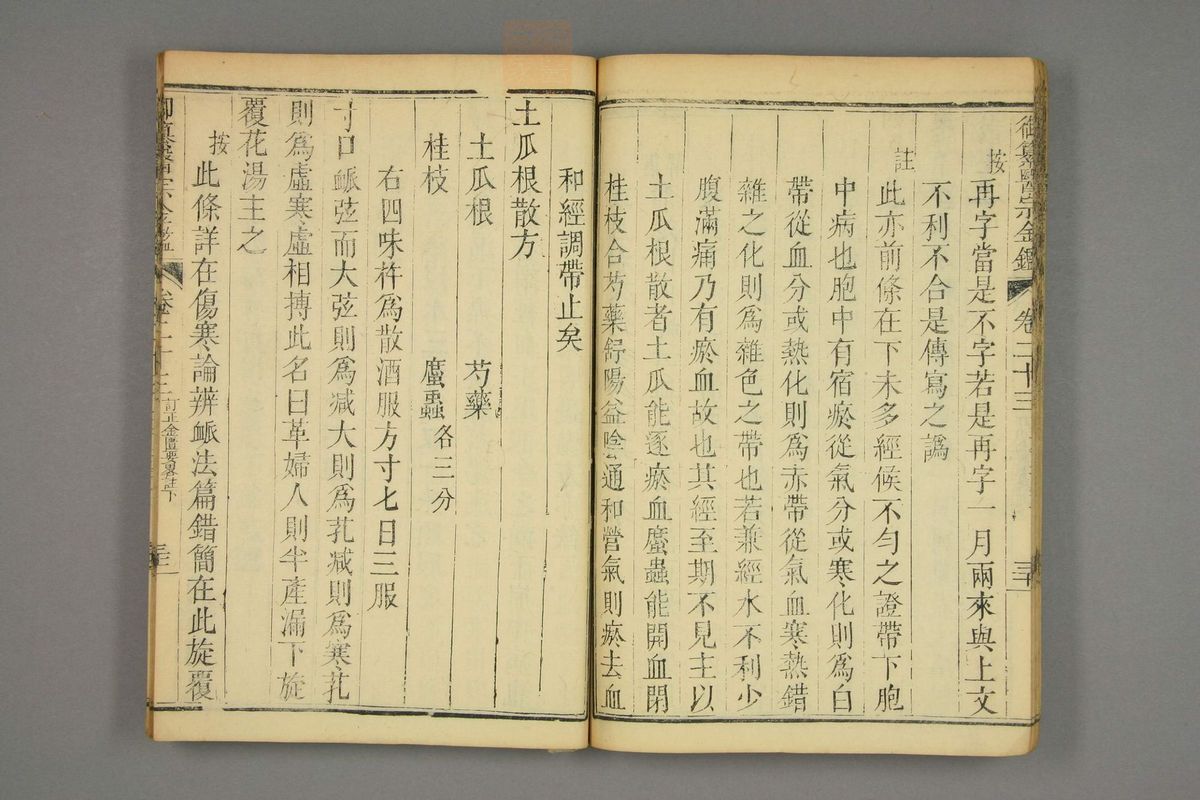 御纂醫宗金鑑 卷二十三
按再字當是不字若是再字一月兩來與上文
不利不合是傳寫之譌
註此亦前條在下未多經候不勻之證帶下胞
中病也胞中有宿瘀從氣分或寒化則爲白
帶從血分或熱化則爲赤帶從氣血寒熱錯
雜之化則爲雜色之帶也若兼經水不利少
腹滿痛乃有瘀血故也其經至期不見主以
土瓜根散者土瓜能逐瘀血䗪蟲能開血閉
桂枝合芍藥舒陽益陰通和營氣則瘀去血
和經調帶止矣
土瓜根散方
土瓜根 芍藥
桂枝 䗪蟲各三分
右四味杵爲散酒服方寸匕日三服
寸口脈弦而大弦則爲減大則爲芤減則爲寒芤
則爲虛寒虛相搏此名曰革婦人則半產漏下旋
覆花湯主之
按此條詳在傷寒論辨脈法篇錯簡在此旋覆
卷二十三 訂正金匱要畧註下